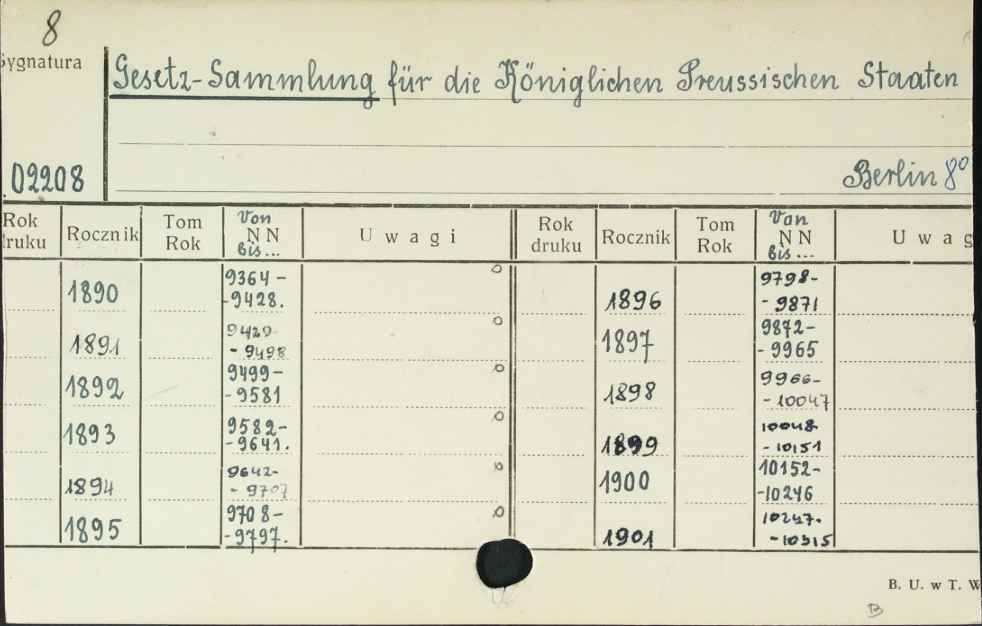 8
Sygnatura
Gesetz-Sammlung für die Königlichen Preussischen Staaten
02208
Berlin 8°
Rok druku Rocznik Tom Rok Von NN bis... Uwagi Rok druku Rocznik Tom Rok Van NN bis... Uwag
1890 9364-
-9428.
1891 9429-
-9498
1892 9499-
-9581
1893 9582-
-9641.
1894 9642-
-9707
1895 9708-
-9797.
1896 9798-
-9871
1897 9872-
-9965
1898 9966-
-10047
1899 10048-
-10151
1900 10152-
-10246
1901 10247-
-10315
B. U. w T. W
B